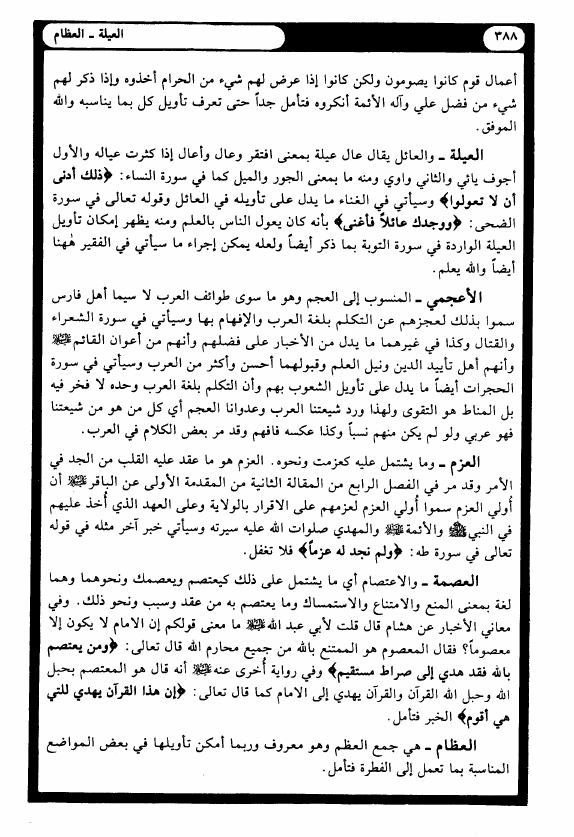 ٣٨٨
العيلة ـ العظام
أعمال قوم كانوا يصومون ولكن كانوا إذا عرض لهم شيء من الحرام أخذوه وإذا ذكر لهم
شيء من فضل علي وآله الأئمة أنكروه فتأمل جداً حتى تعرف تأويل كل بما يناسبه والله
الموفق.
العيلة ـ والعائل يقال عال عيلة بمعنى افتقر وعال وأعال إذا كثرت عياله والأول
أجوف يائي والثاني واوي ومنه ما بمعنى الجور والميل كما في سورة النساء: ﴿ذلك أدنى
أن لا تعولوا﴾ وسيأتي في الغناء ما يدل على تأويله في العائل وقوله تعالى في سورة
الضحى: ﴿ووجدك عائلاً فأغنى﴾ بأنه كان يعول الناس بالعلم ومنه يظهر إمكان تأويل
العيلة الواردة في سورة التوبة بما ذكر أيضاً ولعله يمكن إجراء ما سيأتي في الفقير هٰهنا
أيضاً والله يعلم.
الأعجمي ـ المنسوب إلى العجم وهو ما سوى طوائف العرب لا سيما أهل فارس
سموا بذلك لعجزهم عن التكلم بلغة العرب والإفهام بها وسيأتي في سورة الشعراء
والقتال وكذا في غيرهما ما يدل من الأخبار على فضلهم وأنهم من أعوان القائم
وأنهم أهل تأييد الدين ونيل العلم وقبولهما أحسن وأكثر من العرب وسيأتي في سورة
الحجرات أيضاً ما يدل على تأويل الشعوب بهم وأن التكلم بلغة العرب وحده لا فخر فيه
بل المناط هو التقوى ولهذا ورد شيعتنا العرب وعدوانا العجم أي كل من هو من شيعتنا
فهو عربي ولو لم يكن منهم نسباً وكذا عكسه فافهم وقد مر بعض الكلام في العرب.
العزم ـ وما يشتمل عليه كعزمت ونحوه. العزم هو ما عقد عليه القلب من الجد في
الأمر وقد مر في الفصل الرابع من المقالة الثانية من المقدمة الأولى عن الباقر أن
أُولي العزم سموا أُولي العزم لعزمهم على الاقرار بالولاية وعلى العهد الذي أُخذ عليهم
في النبي ﷺ والأئمة والمهدي صلوات الله عليه سيرته وسيأتي خبر آخر مثله في قوله
تعالى في سورة طه: ﴿ولم نجد له عزماً﴾ فلا تغفل.
العصمة ـ والاعتصام أي ما يشتمل على ذلك كيعتصم ويعصمك ونحوهما وهما
لغة بمعنى المنع والامتناع والاستمساك وما يعتصم به من عقد وسبب ونحو ذلك. وفي
معاني الأخبار عن هشام قال قلت لأبي عبد الله ما معنى قولكم إن الامام لا يكون إلا
معصوماً؟ فقال المعصوم هو الممتنع بالله من جميع محارم الله قال تعالى: ﴿ومن يعتصم
بالله فقد هدي إلى صراط مستقيم﴾ وفي رواية أُخرى عنه أنه قال هو المعتصم بحبل
الله وحبل الله القرآن والقرآن يهدي إلى الامام كما قال تعالى: ﴿إن هذا القرآن يهدي للتي
هي أقوم﴾ الخبر فتأمل.
العظام ـ هي جمع العظم وهو معروف وربما أمكن تأويلها في بعض المواضع
المناسبة بما تعمل إلى الفطرة فتأمل.